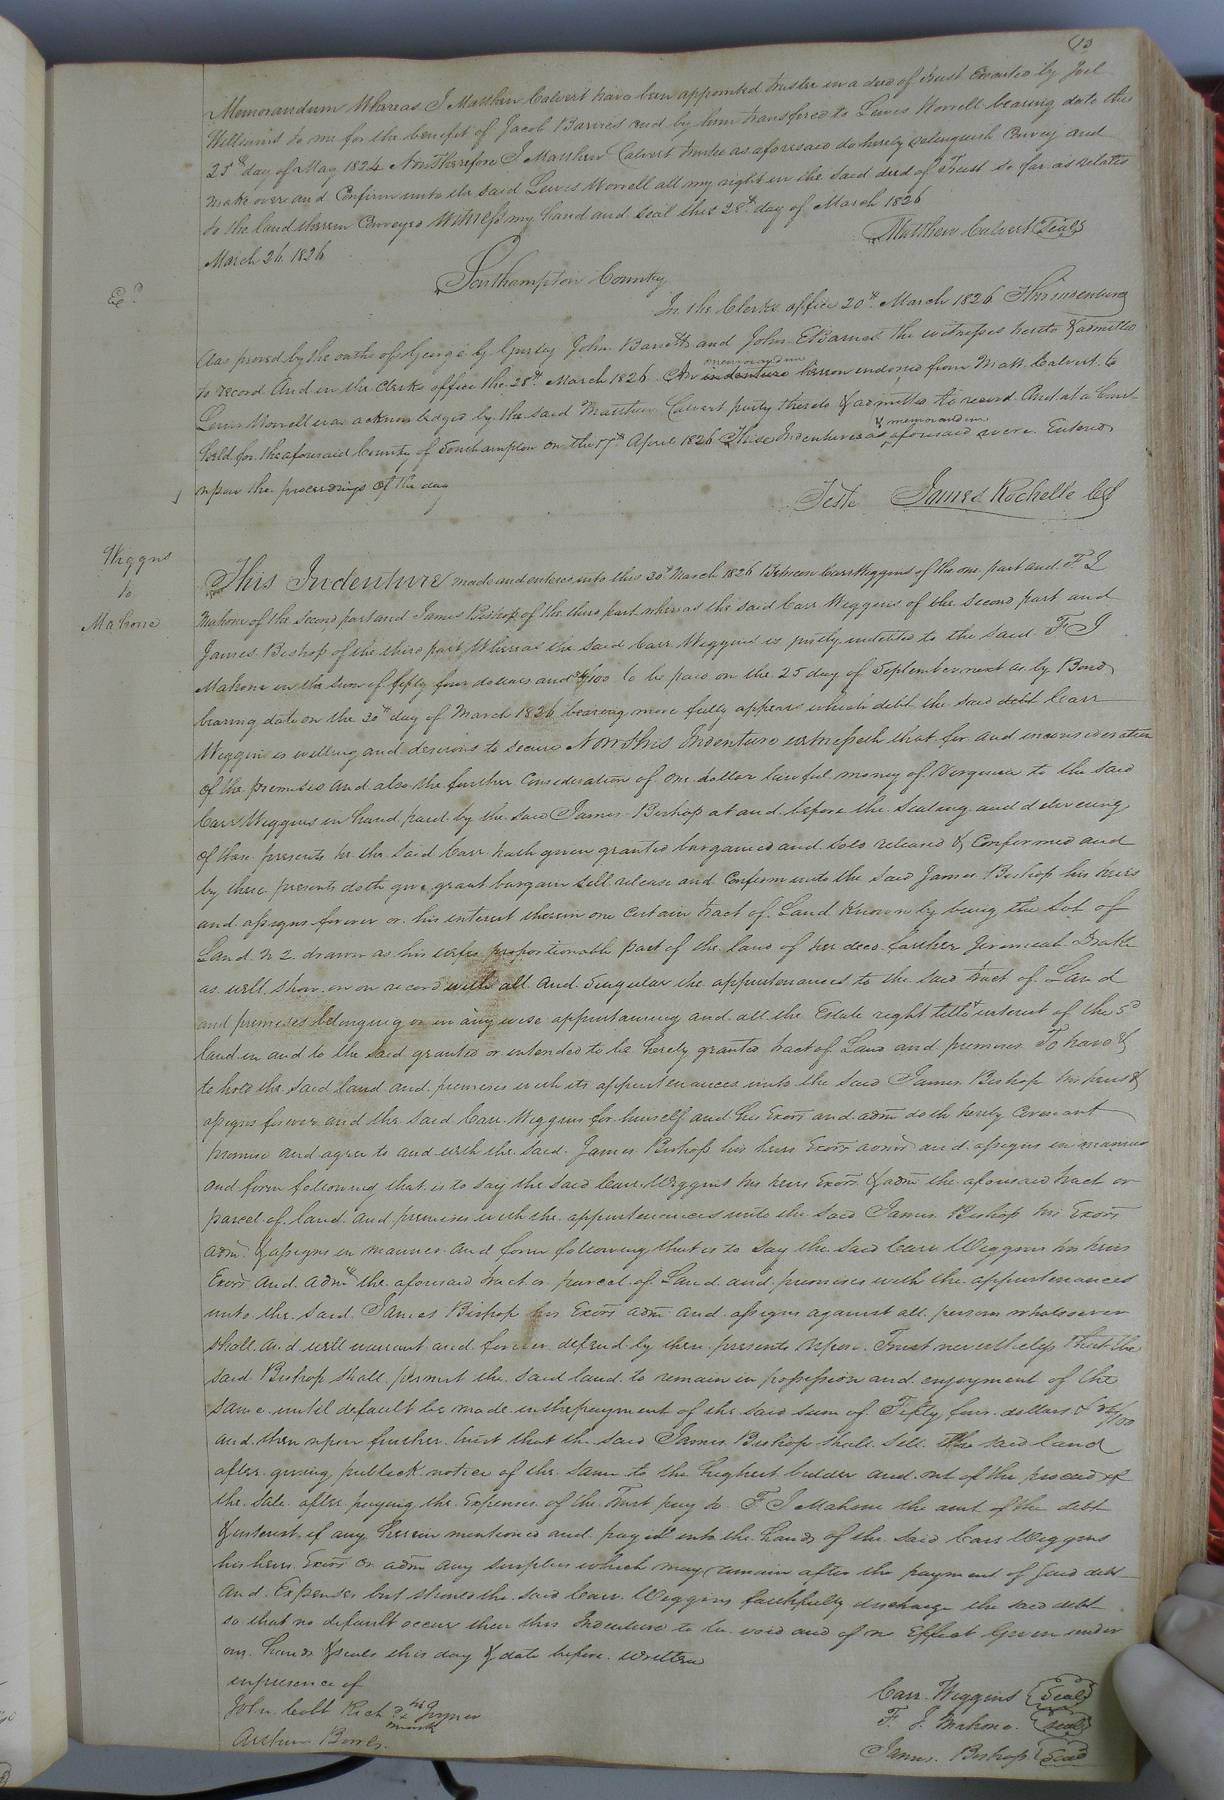 13
Memorandum Whereas I Matthew Calvert have been appointed trustee in a deed of trust executed by Joel
Williams to me for the benefit of Jacob Barnes and by him transfered to Lewis Worrell bearing date this
25th day of May 1824 Now Therefore I Matthew Calvert trustee as aforesaid do hereby relinquish Convey and
make over and Confirm unto the said Lewis Worrell all my right in the said deed of Trust so far as relates
to the land therein Conveyed Witness my hand and seal this 28th day of March 1826
Matthew Calvert Seal
March 26 1826
Southampton County
In the Clerks office 20th March 1826 This indenture
Exd
was proved by the oaths of George G Gurley John Barrett and John E Barnes the witnesses hereto & admitted
to record And in the Clerks office the 28th March 1826 An indenture memorandum hereon endorsed from Matt. Calvert to
Lewis Worrell was acknowledged by the said Matthew Calvert party thereto & admitted to record And at a Court
held for the aforesaid County of Southampton on the 17th April 1826 These Indentures & memorandum as aforesaid were Entered
upon the proceedings of the day
Teste James Rochelle CC
Wiggns
to
Mahone
This Indenture made and entered into this 30th March 1826 Between Carr Wiggins of the one part and F J
Mahone of the second part and James Bishop of the third part whereas the said Carr Wiggins of the second part and
James Bishop of the third part Whereas the said Carr Wiggins is justly indebted to the said F J
Mahone in the sum of fifty four dollars and /100 to be paid on the 25 day of September next as by Bond
bearing date on the 30th day of March 1826 bearing more fully appears which debt the said debt Carr
Wiggins is willing and desirous to secure Now This Indenture witnesseth that for and in consideration
of the premises and also the further Consideration of one dollar lawful money of Virginia to the said
Carr Wiggins in hand paid by the said James Bishop at and before the Sealing and delivering
of these presents he the said Carr hath given granted bargained and sold released & Confirmed and
by these presents doth give grant bargain sell release and Confirm unto the said James Bishop his heirs
and assigns forever or his interest therein one certain tract of Land known by being the Lot of
Land N 2 drawn as his wifes proportionable part of the land of her decd. farther Jeremiah Drake
as will show on on record with all and Singular the appurtenances to the said tract of Land
and premises belonging or in any wise appurtaining and all the Estate right title & interest of the sd
land in and to the said granted or intended to be hereby granted tract of Land and premises To have &
to hold the said land and premises with its appurtenances unto the said James Bishop his heirs &
assigns forever and the said Carr Wiggins for himself and his Exors and adm doth hereby Covenant
Promise and agree to and with the said James Bishop his heirs Exors admr and assigns in manner
and form following that is to say the said Carr Wiggins his heirs Exors & adm the aforesaid tract or
parcel of land and premises with the appurtenances unto the said James Bishop his Exors
adm. & assigns in manner and form following that is to say the said Carr Wiggins his heirs
Exors and adm the aforesaid tract or parcel of Land and premises with the appurtenances
unto the said James Bishop his Exors adm and assigns against all persons whatsoever
shall and will warrant and forever defend by these presents Upon Trust nevertheless that the
said Bishop shall permit the said land to remain in possession and enjoyment of the
same until default be made in the payment of the said sum of Fifty four dollars & /100
and then upon further trust that the said James Bishop shall sell the said land
after giving publick notice of the same to the highest bidder and out of the proceed of
the sale after paying the Expenses of the Trust pay to F J Mahone the amt of the debt
& interest if any herein mentioned and pay it into the hands of the said Carr Wiggins
his heirs Exors or adm any surplus which may remain after the payment of said debt
and Expenses but should the said Carr Wiggins faithfully discharge the said debt
so that no default occur then this Indenture to be void and of no Effect Given under
our hands & seals this day & date before written
in presence of
John Cobb Rich his x mark Joyner
Arthur Bowls
Carr Wiggins Seal
F. J. Mahone. seal
James. Bishop Seal